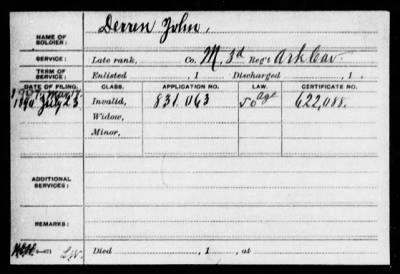 NAME OF SOLDIER: Derren John,
SERVICE: Late rank, Co. M, 3d Reg't Ark Cav.
TERM OF SERVICE: Enlisted , 1 Discharged , 1
DATE OF FILING. CLASS. APPLICATION NO. LAW. CERTIFICATE NO.
1890 July 23 Invalid, 831.063 Age 622,088.
Widow,
Minor,
ADDITIONAL SERVICES:
REMARKS:
Died , 1 , at